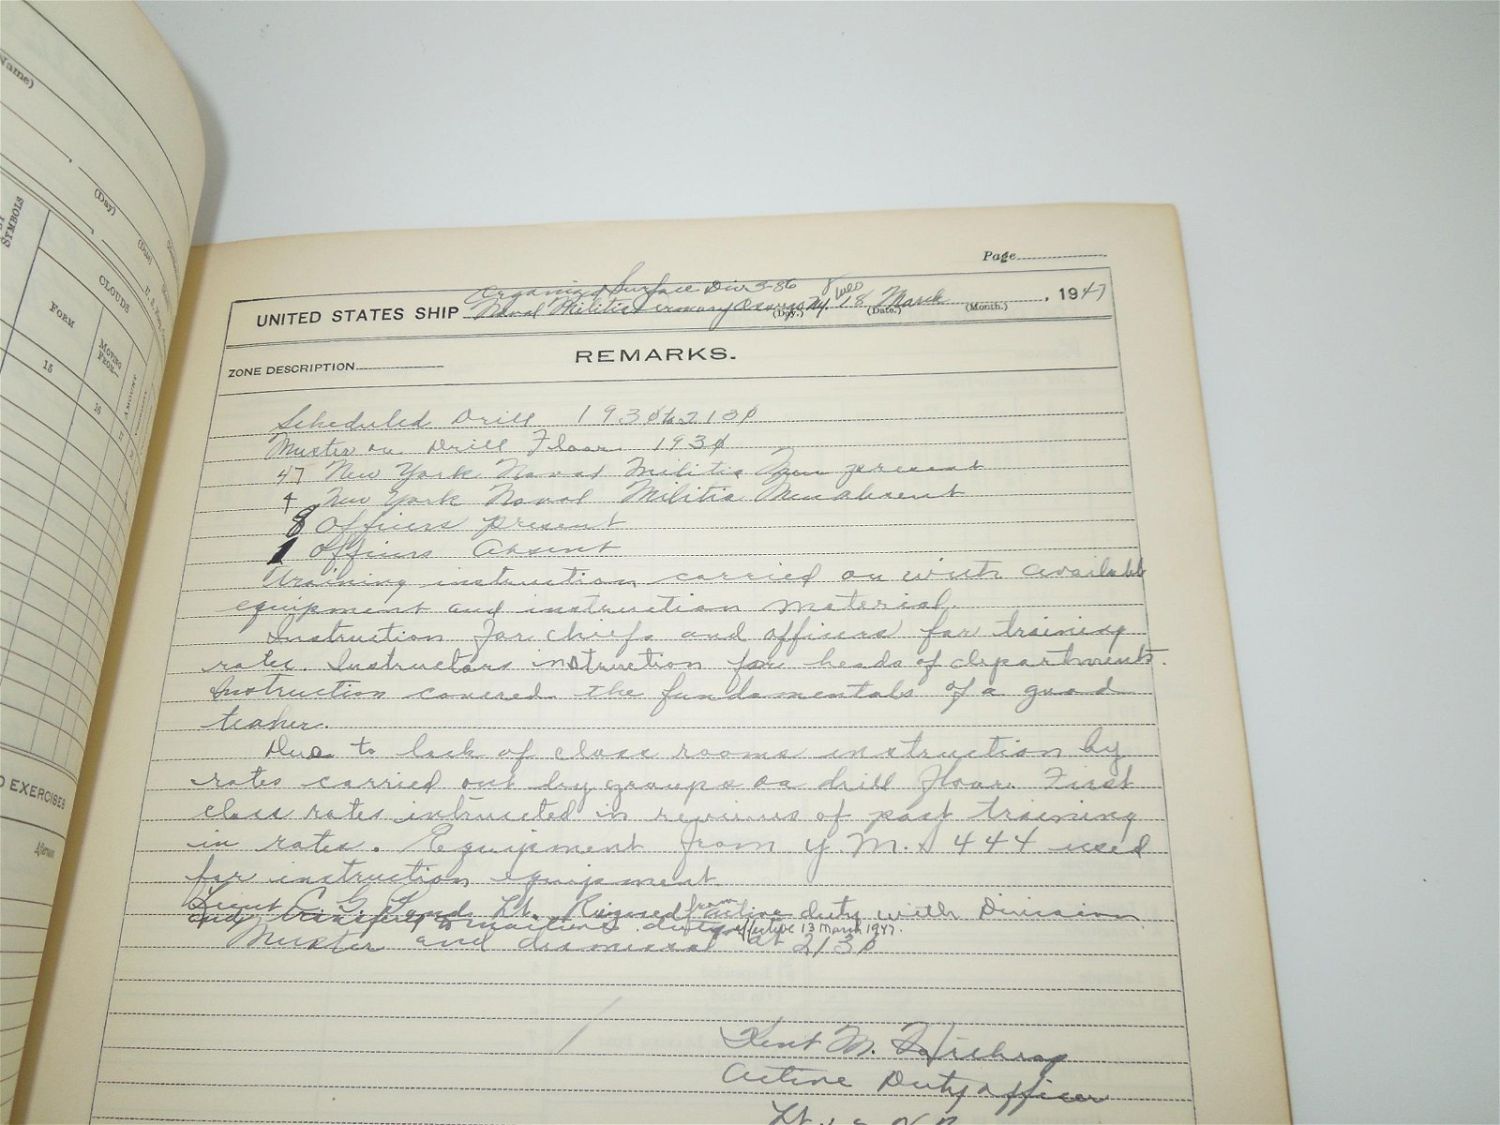 Name)
(Day)
SYMBOLS
CLOUDS
FORM
MOVING FROM—
AMOUNT
15
16
17
EXERCISES
Afternoon
Page
Organized Surface Div 3-86
UNITED STATES SHIP Naval Militia Armory (Day.) 18 (Date.) March (Month.) , 1947
REMARKS.
ZONE DESCRIPTION
Scheduled Drill 1930 to 2130
Muster on Drill Floor 1930
47 New York Naval Militia Men present
4 New York Naval Militia Men absent
8 Officers present
1 Officers absent
Training instruction carried on with available
equipment and instruction material.
Instruction for chiefs and officers for training
rates. Instructors instruction for heads of departments.
Instruction covered the fundamentals of a good
teaher.
Due to lack of class rooms instruction by
rates carried out by groups on drill floor. First
class rates intructed in reviews of past training
in rates. Equipment from Y.M.S 444 used
for instruction equipment.
Lieut C. G. Lt. Resigned from active duty with Division
and transfered to inactive duty effective 13 March 1947.
Muster and dismissal at 2130
Kent M.
Active Duty officer
Lt.